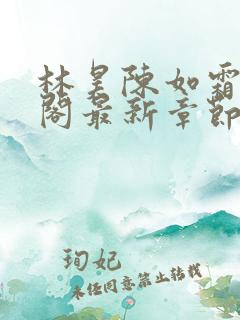 林昊陳如霜
閣最新章節
珣妃
未任同意禁止转载